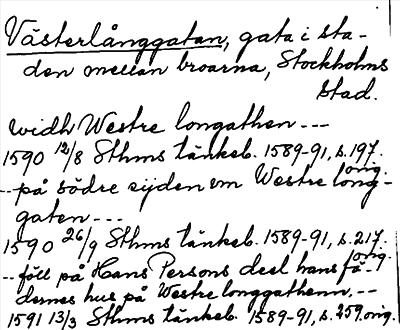 Västerlånggatan, gata i sta-
den mellan broarna, Stockholms
stad.
widh Westre longathen ---
1590 12/8 Sthms tänkeb. 1589-91, s. 197.
orig.
-- på södre sijden om Westre long-
gaten ---
1590 26/9 Sthms tänkeb. 1589-91, s. 217.
orig.
-- föll på Hans Persons deel hans fa-
dernes hus på Westre longgathenn ---
1591 13/3 Sthms tänkeb. 1589-91, s. 259. orig.